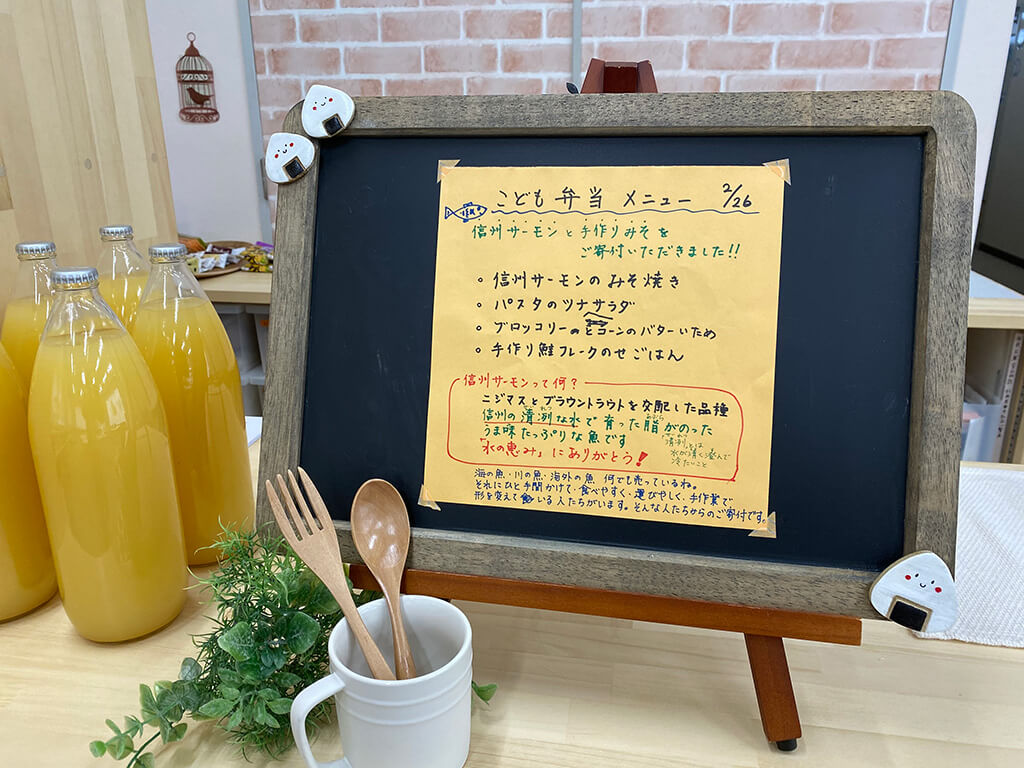 こども弁当 メニュー 2/26
信州サーモンと手作りみそを
ご寄付いただきました!!
• 信州サーモンのみそ焼き
• パスタのツナサラダ
• ブロッコリーとコーンのバターいため
• 手作り鮭フレークのせごはん
信州サーモンって何?
ニジマスとブラウントラウトを交配した品種
信州の清冽な水で育った脂がのった
うま味たっぷりな魚です
「水の恵み」にありがとう!
清冽とは
水が清く澄んで
冷たいこと
海の魚・川の魚・海外の魚 何でも売っているね。
それにひと手間かけて・食べやすく・運びやしく・手作業で
形を変えている人たちがいます。そんな人たちからのご寄付です。